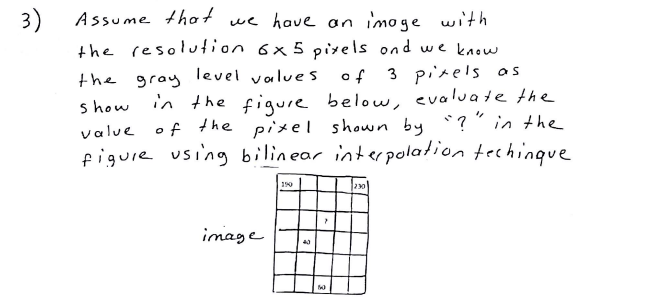 3) Assume that we have an image with
the resolution 6x5 pixels and we know
the gray level values of 3 pixels as
show in the figure below, evaluate the
value of the pixel shown by "?" in the
figure using bilinear interpolation techinque
190 230
?
image
40
60